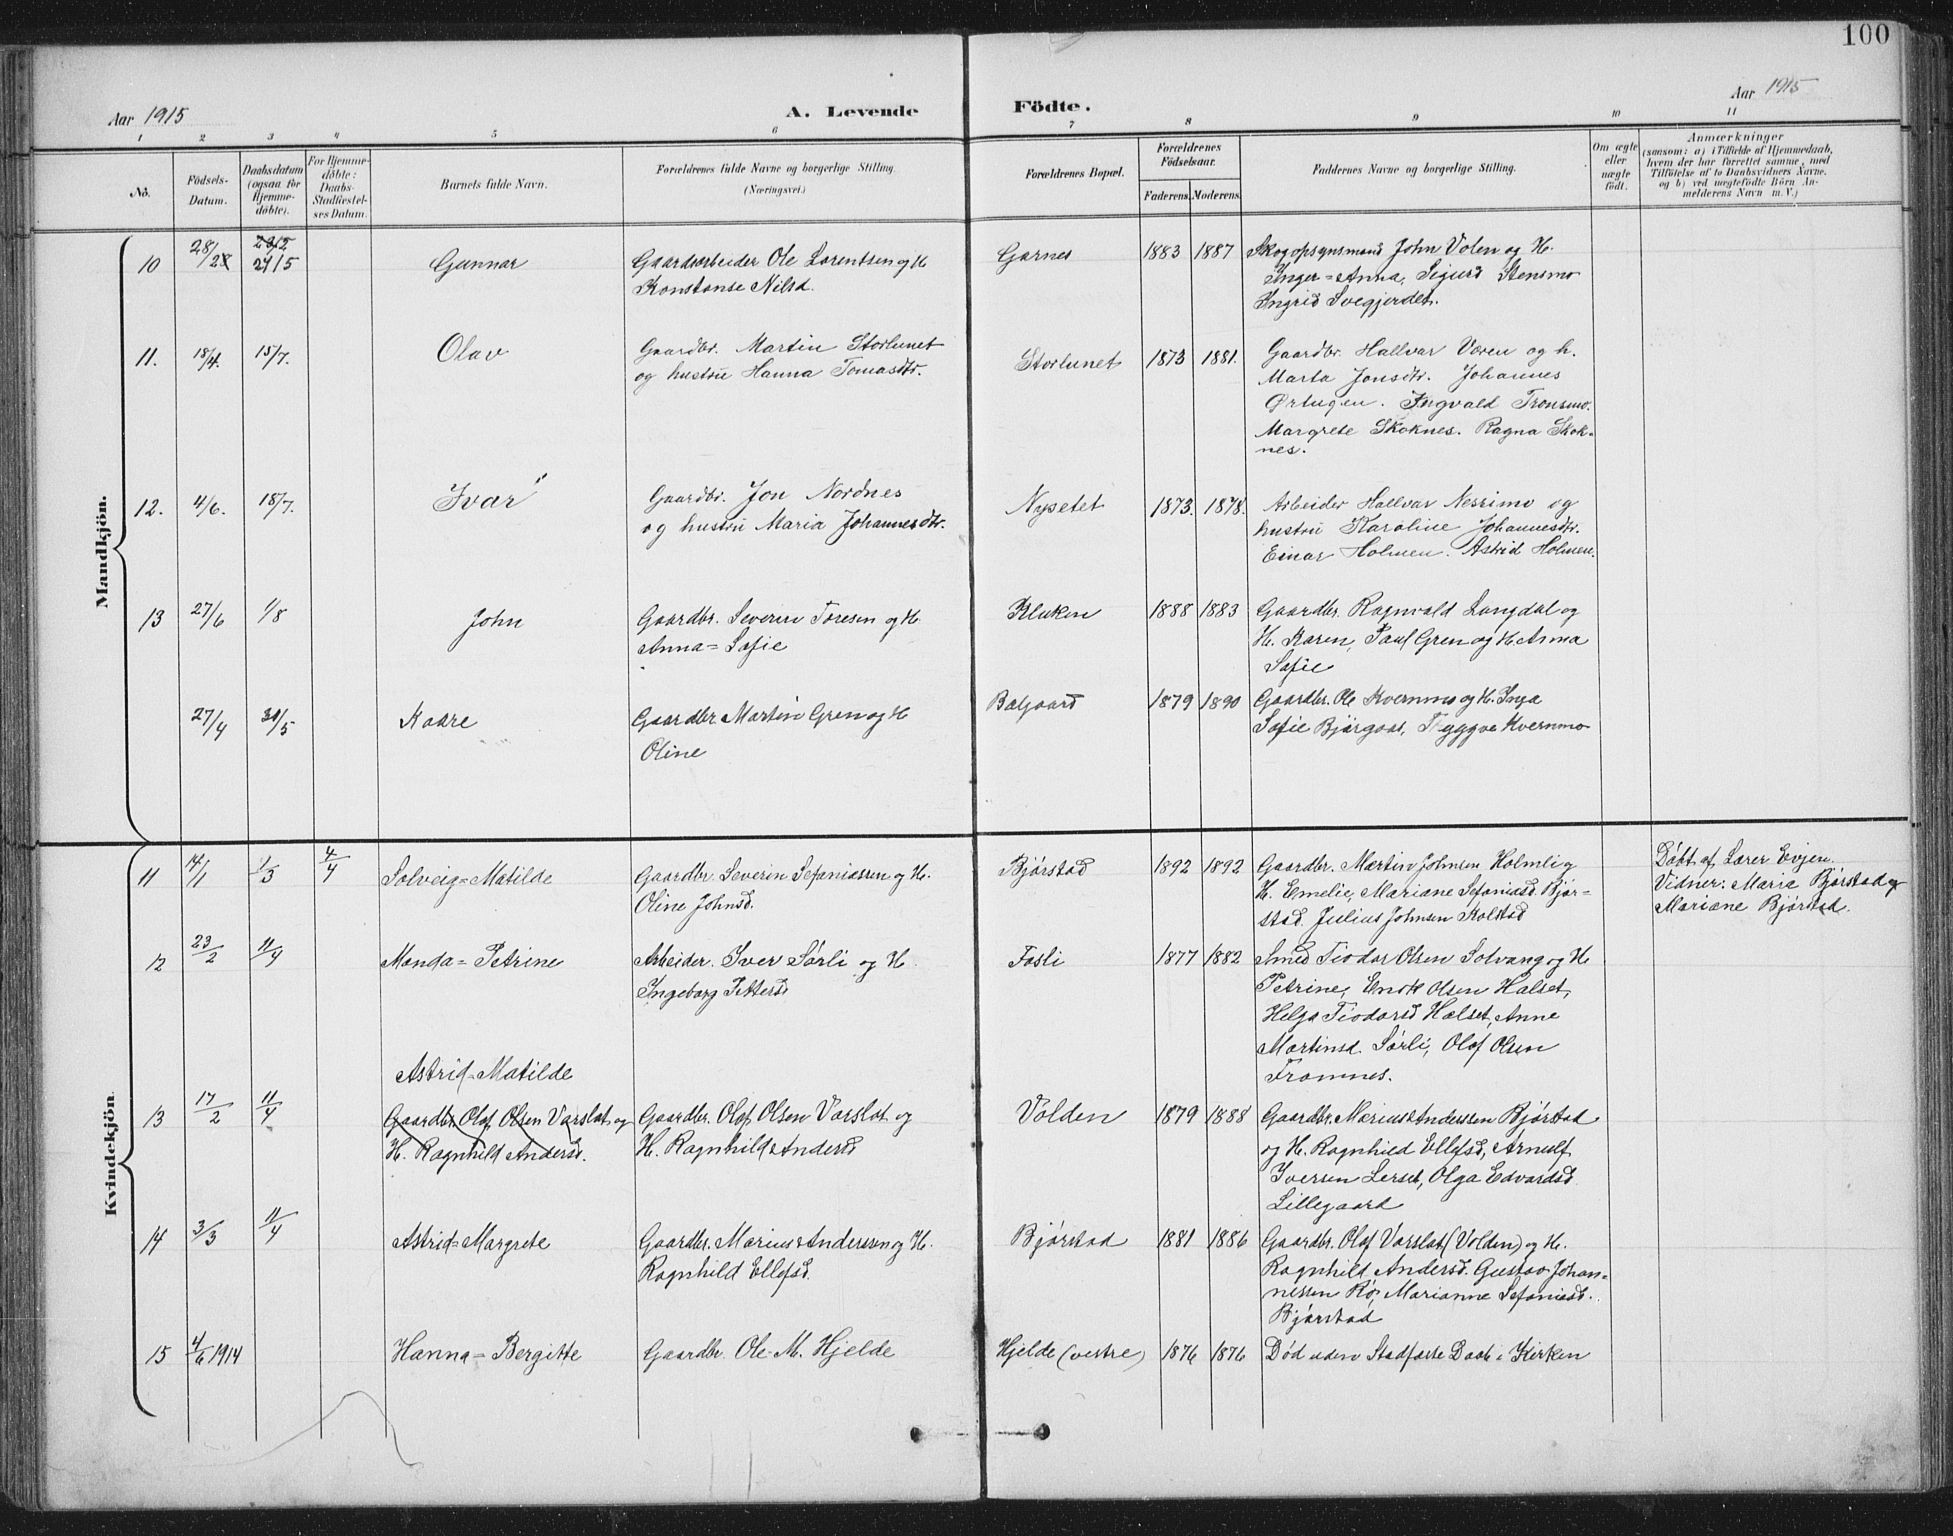 100
Aar 1915
A. Levende Födte.
Aar 1915
1 2 3 4 5 6 7 8 9 10 11
No.
Födsels-
Datum.
Daabsdatum
(ogsaa for
Hjemme-
döbte).
For Hjemme-
döbte:
Daabs-
Stadfæstel-
ses Datum.
Barnets fulde Navn.
Forældrenes fulde Navne og borgerlige Stilling.
(Næringsvei.)
Forældrenes Bopæl.
Forældrenes
Födselsaar.
Faderens. Moderens.
Faddernes Navne og borgerlige Stilling.
Om ægte
eller
uægte
födt.
Anmærkninger
(saasom: a) i Tilfælde af Hjemmedaab,
hvem der har forrettet samme, med
Tilföielse af to Daabsvidners Navne,
og b) ved uægtefödte Börn An-
melderens Navn m. V.)
Mandkjön.
10 28/2 24/5 Gunnar
Gaardsarbeider Ole Lorentsen og H
Konstanse Nilsd.
Garnes 1883 1887
Skogopsynsmand John Volen og H.
Inger=Anna, Sigurd Stensmo
Ingrid Svegjerdet.
11. 18/4. 15/7. Olav
Gaardbr. Martin Storlunet
og hustru Hanna Tomasdtr.
Storlunet 1873 1881.
Gaardbr. Hallvar Væren og h.
Marta Jonsdtr. Johannes
Ørtugen. Ingvald Tronsmo.
Margrete Skoknes. Ragna Skok-
nes.
12. 4/6. 18/7. Ivar
Gaardbr. Jon Nordnes
og hustru Maria Johannesdtr.
Nysetet 1873. 1878.
Arbeider Hallvar Nessimo og
hustru Karoline Johannesdtr.
Einar Holmen. Astrid Holmen.
13 27/6 1/8 John
Gaardbr. Severin Toresen og H.
Anna=Sofie
Kluken 1888 1883
Gaardbr. Ragnvald Langdal og
H. Karen, Paul Gren og H. Anna
Sofie
27/4 30/5 Kaare
Gaardbr Martin Gren og H
Oline
Balgaard 1879 1890
Gaardbr. Ole Kvernmo og H. Inga
Sofie Bjørgaas, Tryggve Kvernmo
Kvindekjön.
11 14/1 1/3 4/4 Solveig=Matilde
Gaardbr. Severin Sefaniassen og H.
Oline Johnsd.
Bjørstad 1892 1892
Gaardbr. Martin Johnsen Holmli og
H. Emelie, Mariane Sefaniasd. Bjør-
stad. Julius Johnsen Kolstad
Døbt af Lærer Evjen.
Vidner: Maria Bjørstad og
Mariane Bjørstad.
12 23/2 11/4 Manda=Petrine
Arbeider. Iver Sørli og H.
Ingeborg Pettersd
Fosli 1877 1882
Smed Tiodor Olsen Solvang og H.
Petrine, Enok Olsen Halset,
Helga Tiodorsd Halset, Anne
Martinsd. Sørli, Olof Olsen
Framnes.
Astrid=Matilde
13 17/2 11/4 Gaardbr. Olof Olsen Varslot og
H. Ragnhild Andersd.
Gaardbr. Olof Olsen Varslot og
H. Ragnhild Andersd
Volden 1879 1888
Gaardbr. Marius Anderssen Bjørstad
og H. Ragnhild Ellefsd, Arnulf
Iversen Lerset, Olga Edvardsd.
Lillegaard
14 3/3 11/4 Astrid=Margrete
Gaardbr. Marius Anderssen og H.
Ragnhild Ellefsd.
Bjørstad 1881 1886
Gaardbr. Olof Varslot (Volden) og H.
Ragnhild Andersd. Gustav Johan=
nessen Rø, Marianne Sefaniasd.
Bjørstad
15 4/6 1914 Hanna=Bergitte
Gaardbr. Ole M. Hjelde
Hjelde (vestre) 1876 1876
Død uden Stadfæste Daab i Kirken